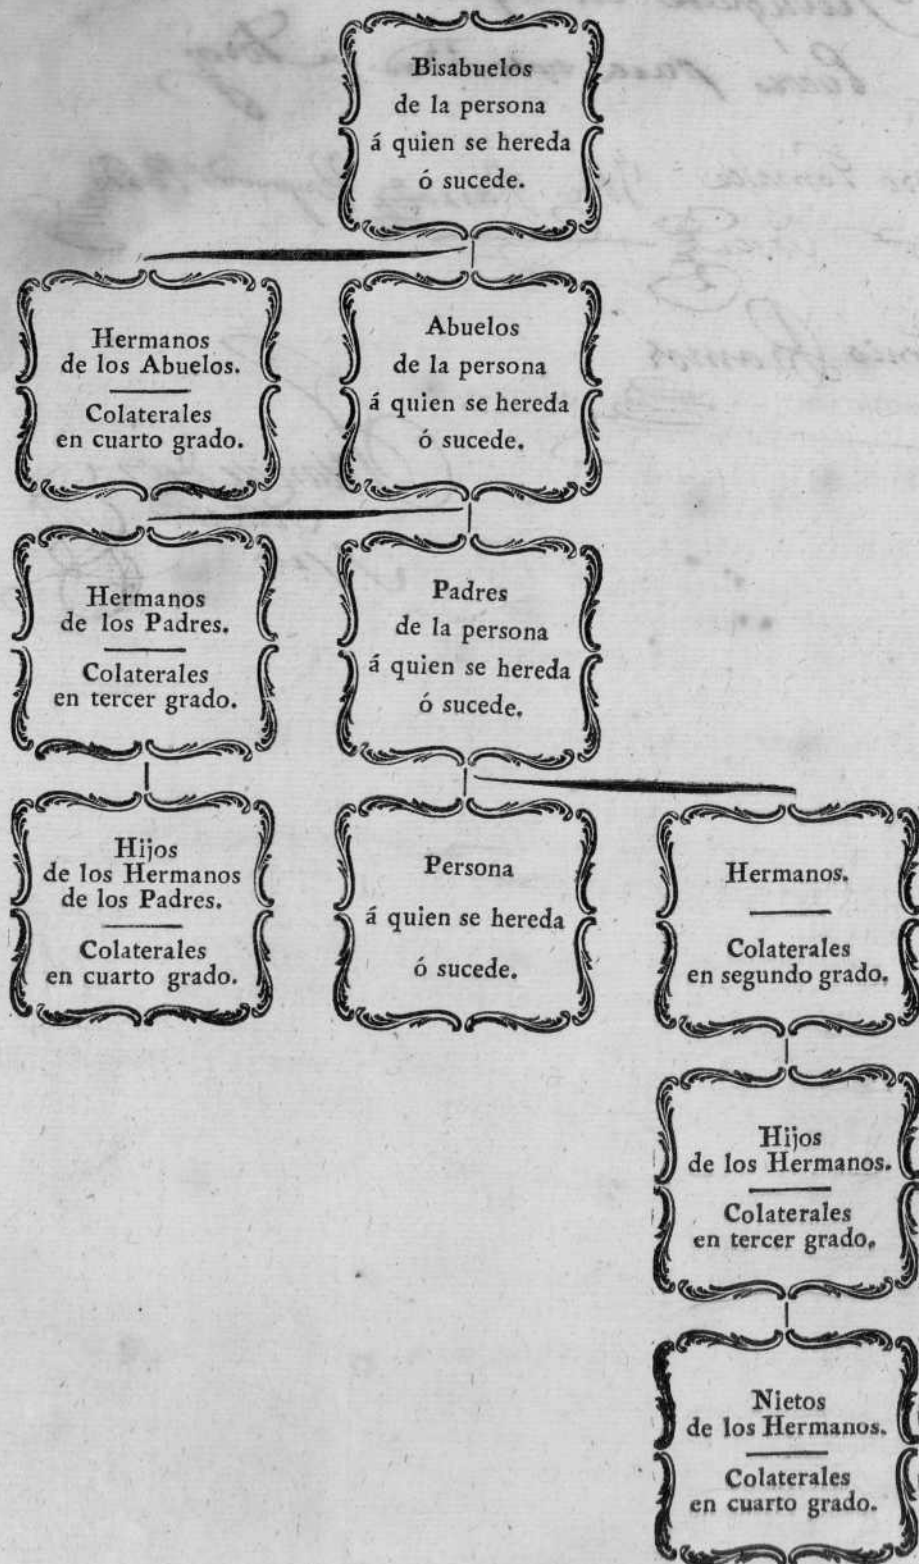 Bisabuelos
de la persona
á quien se hereda
ó sucede.
Hermanos
de los Abuelos.
Colaterales
en cuarto grado.
Abuelos
de la persona
á quien se hereda
ó sucede.
Hermanos
de los Padres.
Colaterales
en tercer grado.
Padres
de la persona
á quien se hereda
ó sucede.
Hijos
de los Hermanos
de los Padres.
Colaterales
en cuarto grado.
Persona
á quien se hereda
ó sucede.
Hermanos.
Colaterales
en segundo grado.
Hijos
de los Hermanos.
Colaterales
en tercer grado.
Nietos
de los Hermanos.
Colaterales
en cuarto grado.